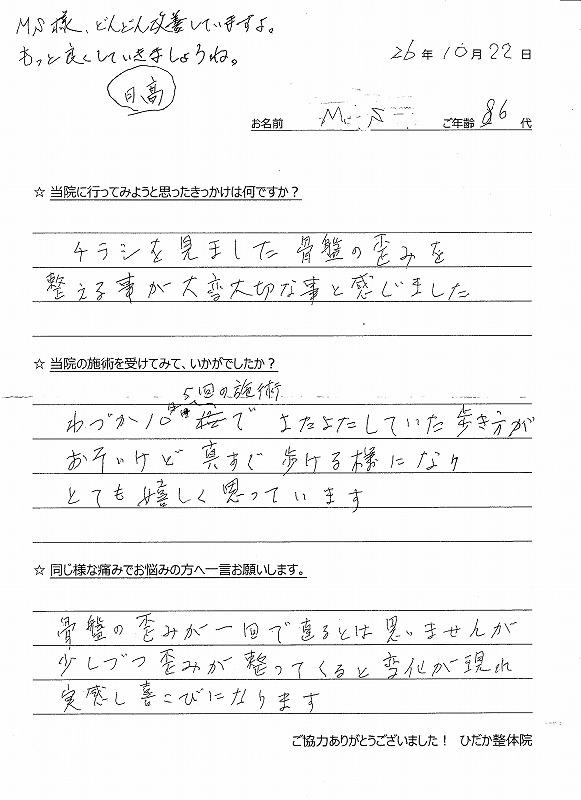 MS様、どんどん改善していますよ。
もっと良くしていきましょうね。
日高
26年10月22日
お名前 M S ご年齢 86 代
☆ 当院に行ってみようと思ったきっかけは何ですか？
チラシを見ました 骨盤の歪みを
整える事が大変大切な事と感じました
☆ 当院の施術を受けてみて、いかがでしたか？
5回の施術
わづか10 で またよたしていた歩き方が
おそいけど真すぐ歩ける様になり
とても嬉しく思っています
☆ 同じ様な痛みでお悩みの方へ一言お願いします。
骨盤の歪みが一回で直るとは思いませんが
少しづつ歪みが整ってくると変化が現れ
実感し喜こびになります
ご協力ありがとうございました！ ひだか整体院